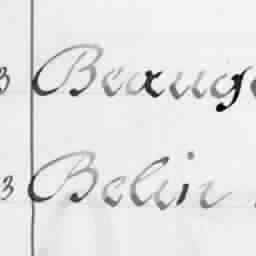 3 Beauge
3 Belin